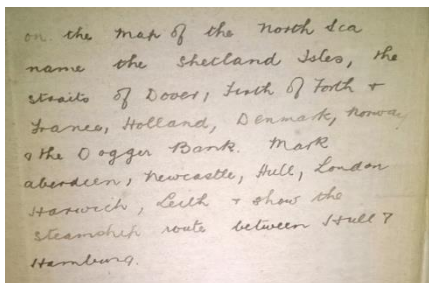 on the map of the North Sea
name the Shetland Isles, the
straits of Dover, Firth of Forth &
France, Holland, Denmark, Norway
& the Dogger Bank. Mark
aberdeen, Newcastle, Hull, London
Harwich, Leith & show the
steamship route between Hull &
Hamburg.